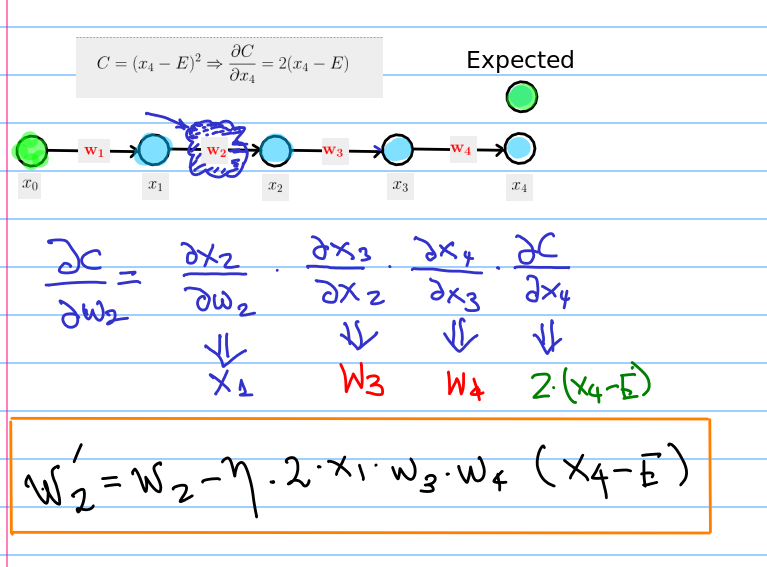 C = (x₄ − E)² ⇒ ∂C/∂x₄ = 2(x₄ − E)
Expected
w₁ w₂ w₃ w₄
x₀ x₁ x₂ x₃ x₄
∂C/∂w₂ = ∂x₂/∂w₂ · ∂x₃/∂x₂ · ∂x₄/∂x₃ · ∂C/∂x₄
⇓ ⇓ ⇓ ⇓
x₁ w₃ w₄ 2·(x₄−E)
w₂′ = w₂ − η · 2 · x₁ · w₃ · w₄ (x₄ − E)